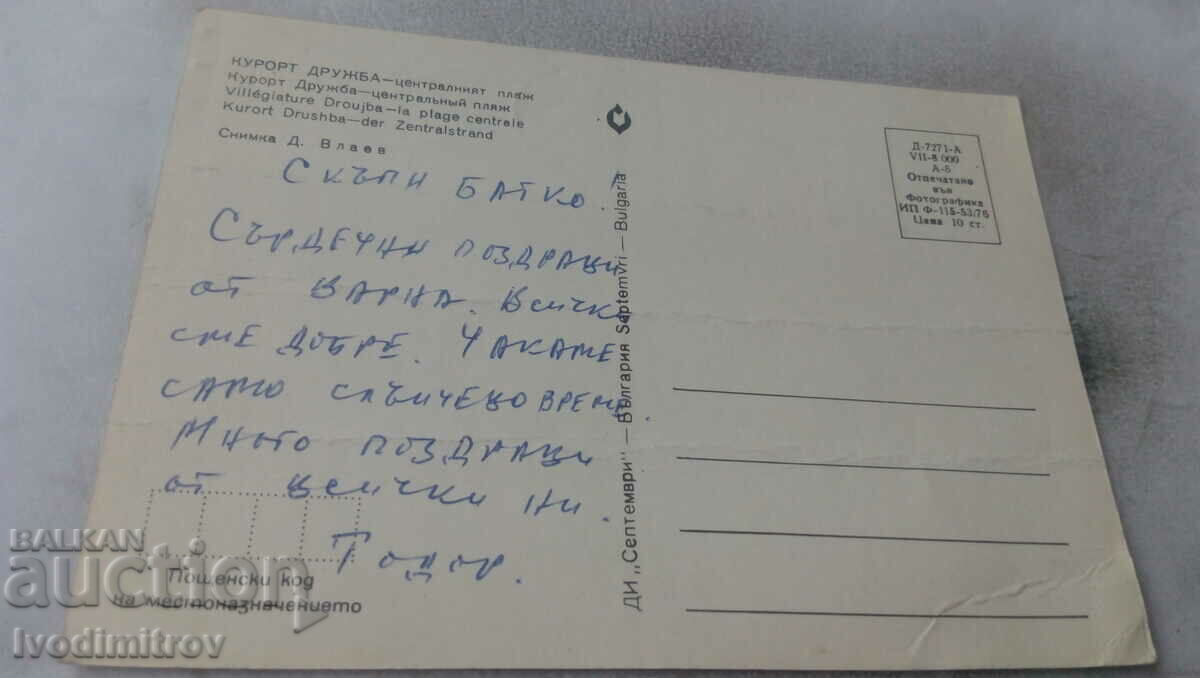 КУРОРТ ДРУЖБА—централният плаж
Курорт Дружба—центральный пляж
Villégiature Droujba—la plage centrale
Kurort Drushba—der Zentralstrand
Снимка Д. Влаев
Скъпи Батко!
Сърдечни поздрави
от Варна. Всички
сме добре. Чакаме
само слънчево време.
Много поздрави
от всички ни.
Тодор.
Пощенски код
на местоназначението
ДИ „Септември" — България Septemvri — Bulgaria
Д-7271-А
VII-8 000
А-6
Отпечатано
във
Фотографика
ИП Ф-115-53/76
Цена 10 ст.
BALKAN
auction
Ivodimitrov